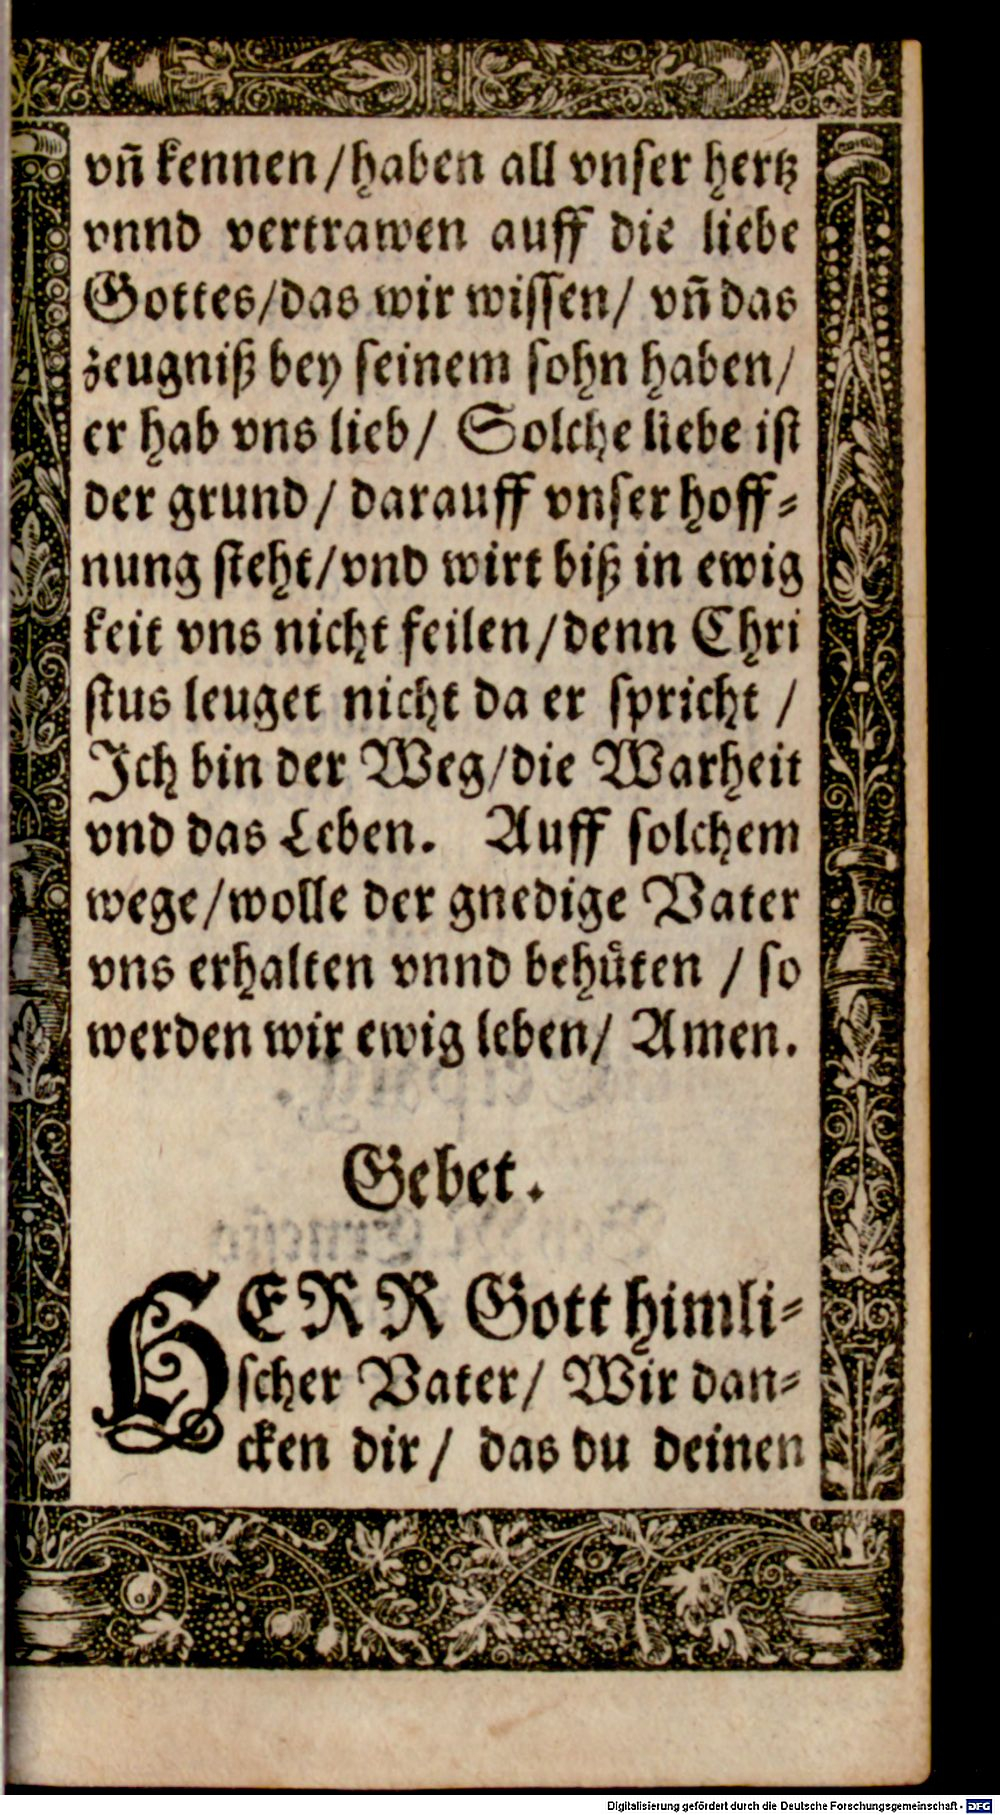 vñ kennen /haben all vnſer hertz
vnnd vertrawen auff die liebe
Gottes/das wir wiſſen/ vñ das
zeugniß bey ſeinem ſohn haben/
er hab vns lieb/ Solche liebe iſt
der grund/ darauff vnſer hoff⸗
nung ſteht/vnd wirt biß in ewig
keit vns nicht feilen/denn Chri
ſtus leuget nicht da er ſpricht /
Ich bin der Weg/die Warheit
vnd das Leben. Auff ſolchem
wege/wolle der gnedige Vater
vns erhalten vnnd behuͤten / ſo
werden wir ewig leben/ Amen.
Gebet.
HERR Gott himli⸗
ſcher Vater/ Wir dan⸗
cken dir/ das du deinen
Digitalisierung gefördert durch die Deutsche Forschungsgemeinschaft - DFG